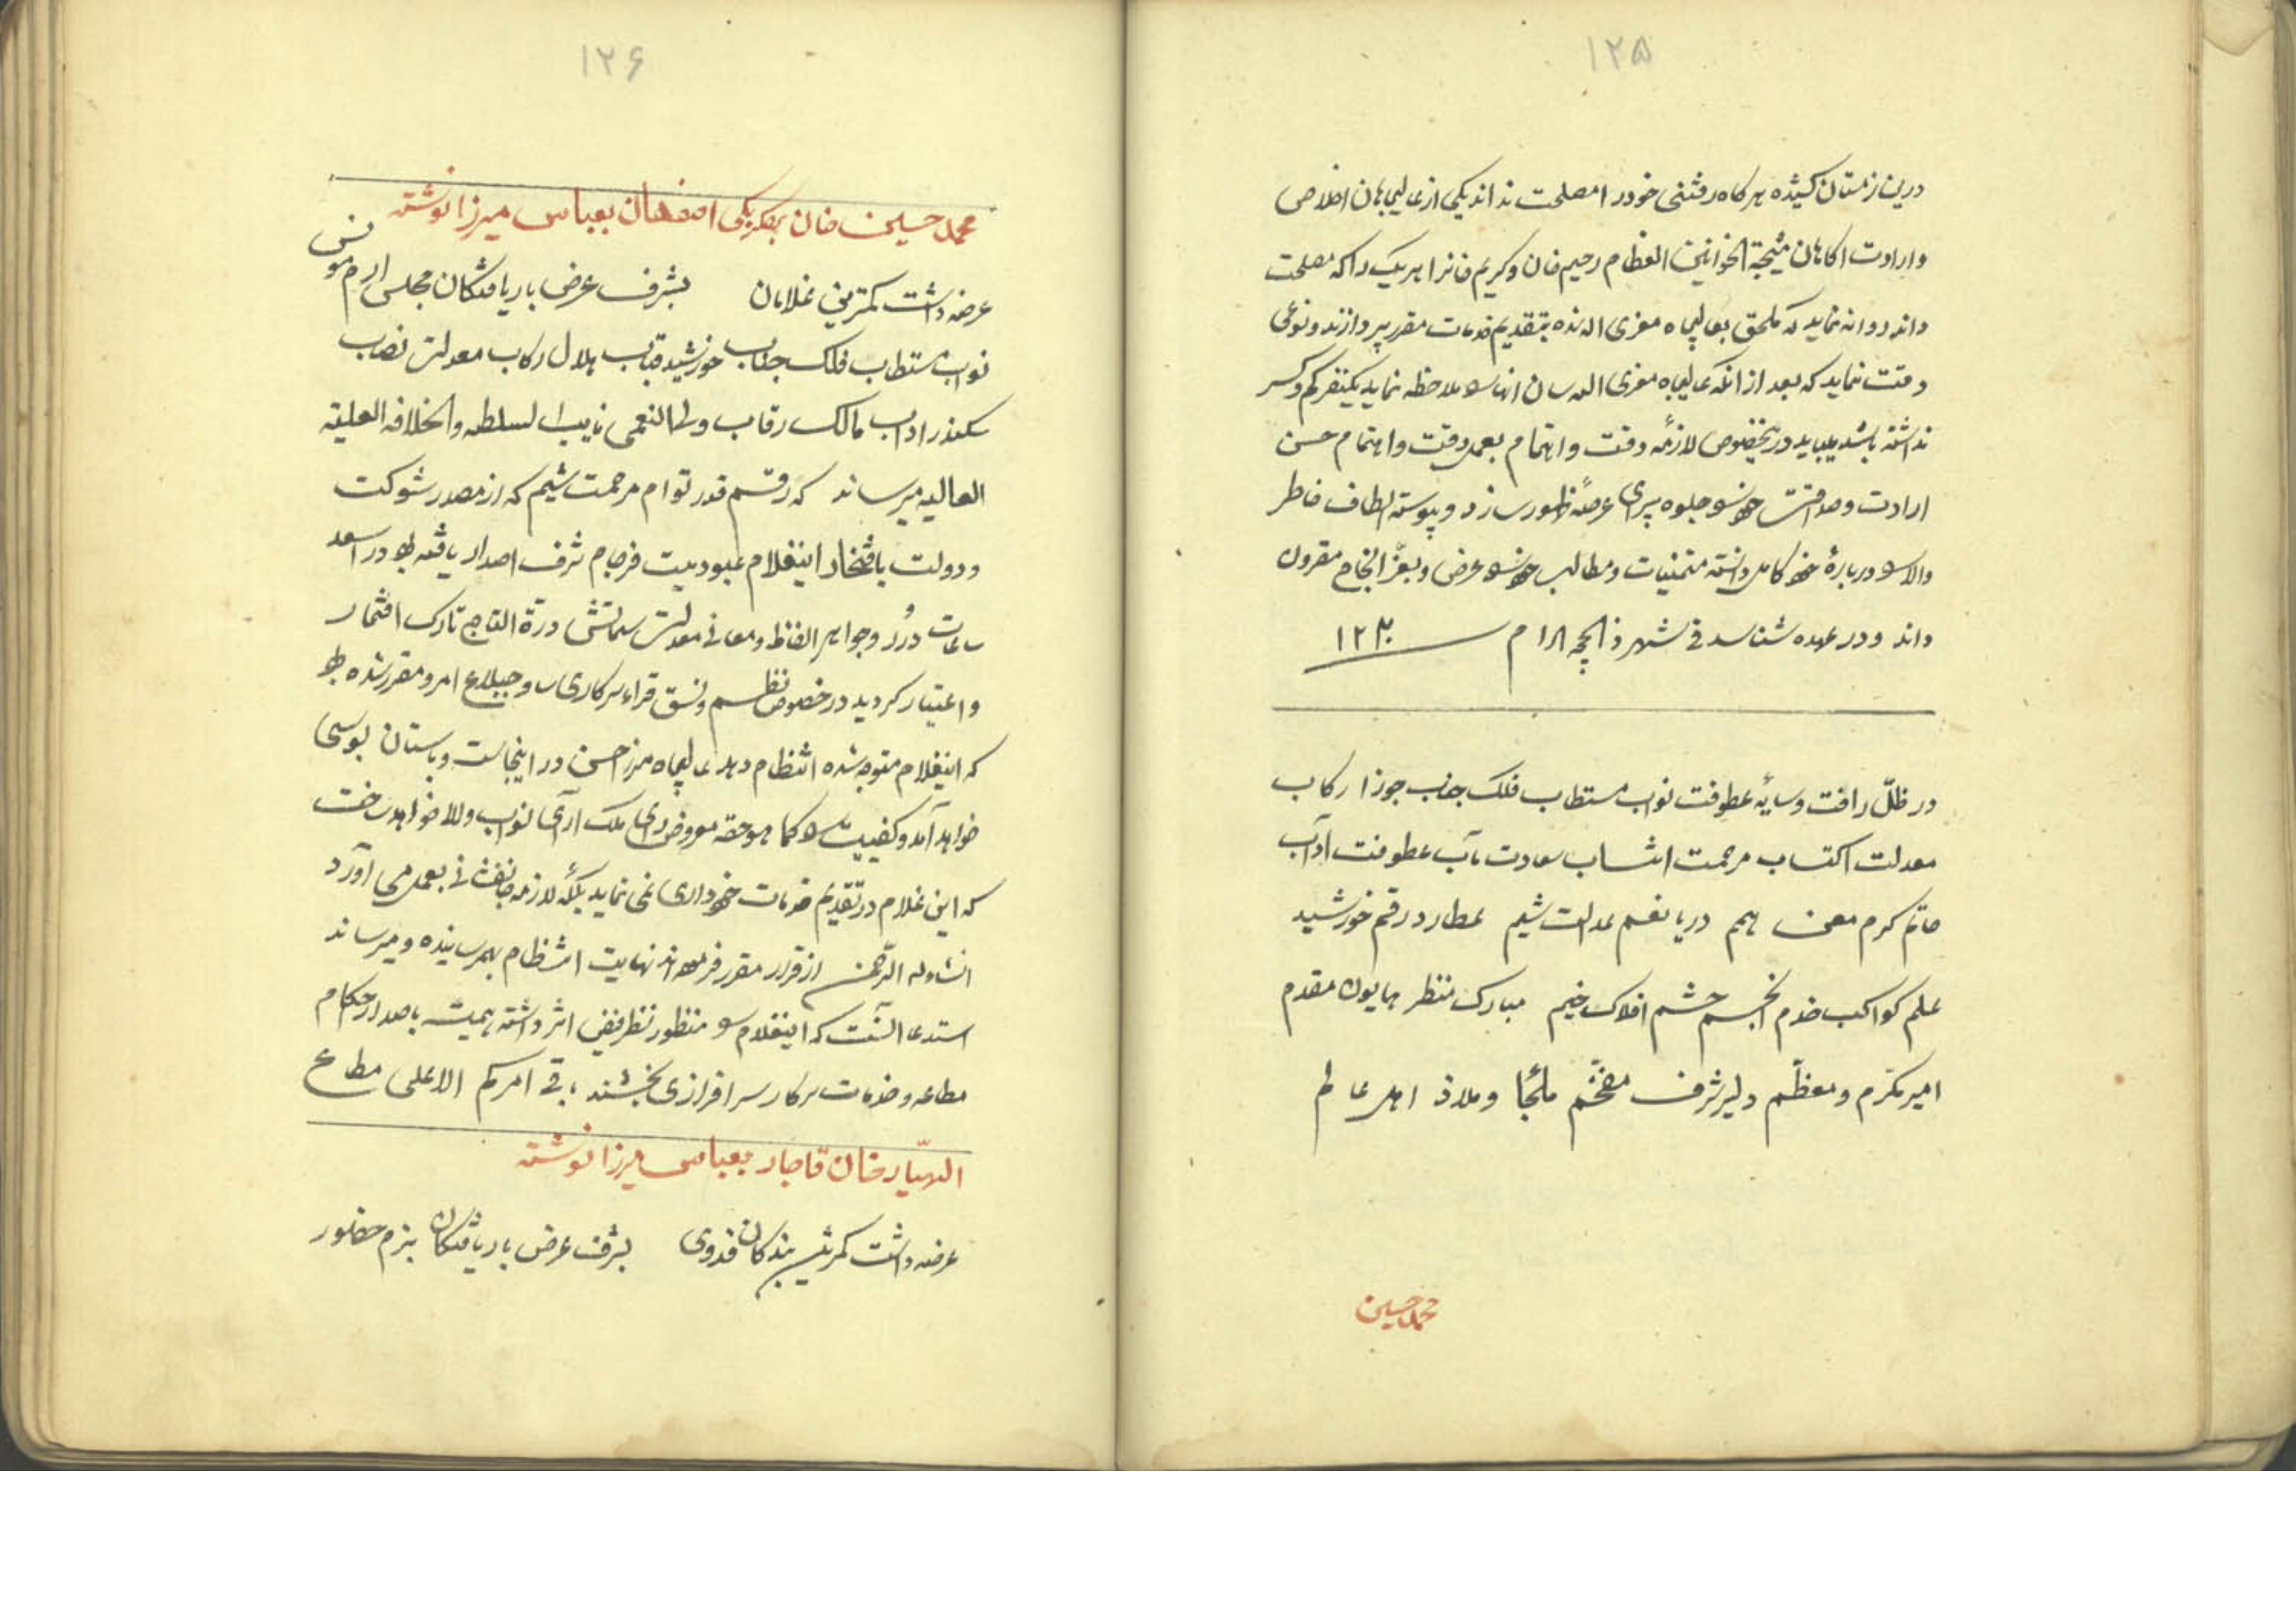 ۱۲۵
درین زمستان کشیده هرگاه رفتنی خود را مصلحت نداند یکی از عالیجاهان اخلاص
و ارادت آگاهان نتیجة الخوانین العظام رحیم خان و کریم خان را هر یک را که مصلحت
داند روانه نماید که ملحق بعالیجاه معزی الیه شده بتقدیم خدمات مقرر پردازند و نوعی
دقت نماید که بعد از آنکه عالیجاه معزی الیه سان آنها را ملاحظه نماید یکنفر کم و کسر
نداشته باشد میباید درینخصوص لازمه دقت و اهتمام بعمل دقت و اهتمام حسن
ارادت و صداقت خود را جلوه پیرای عرصه ظهور سازد و پیوسته الطاف خاطر
والا را درباره خود کامل دانسته متمنیات و مطالب خود را عرض و بعز انجاح مقرون
داند و در عهده شناسد فی شهر ذالحجه الحرام ۱۲۳۰
در ظلّ رافت و سایهٔ عطوفت نواب مستطاب فلک جناب جوزا رکاب
معدلت اکتساب مرحمت انتساب سعادت مآب عطوفت آداب
حاتم کرم معن همم دریا نعم عدالت شیم عطارد رقم خورشید
علم کواکب خدم انجم حشم افلاک خیم مبارک منظر همایون مقدم
امیر مکرّم و معظّم دلیر شرف مفخّم ملجأ و ملاذ اهل عالم
محمد حسین
۱۲۶
محمد حسین خان بیگلربیگی اصفهان بعباس میرزا نوشته
عرضه داشت کمترین غلامان بشرف عرض باریافتگان مجلس ارم مونس
نواب مستطاب فلک جناب خورشید قباب هلال رکاب معدلت نصاب
سکندر آداب مالک رقاب ولی النعمی نایب السلطنه والخلافه العلیه
العالیه میرساند که رقم قدر توام مرحمت شیم که از مصدر شوکت
و دولت بافتخار اینغلام عبودیت فرجام شرف اصدار یافته بود در اسعد
ساعات درر و جواهر الفاظ و معانی معدلت سماتش درة التاج تارک افتخار
و اعتبار گردید در خصوص نظم و نسق قراء سرکاری ساوجبلاغ امر و مقرر شده بود
که اینغلام متوجه شده انتظام دهد عالیجاه میرزا حسن در اینجاست و باستان بوسی
خواهد آمد و کیفیت را کما هو حقه معروض رای ملک آرای نواب والا خواهد ساخت
که این غلام در تقدیم خدمات خودداری نمی نماید بلکه لازمه جانفشانی بعمل می آورد
انشاءله الرحمن از قرار مقرر فرموده اند نهایت انتظام بهمرسانیده و میرساند
استدعا آنست که اینغلام را منظور نظر فیض اثر داشته همیشه باصدار احکام
مطاعه و خدمات سرکار سرافرازی بخشند باقی امرکم الاعلی مطاع
الهیار خان قاجار بعباس میرزا نوشته
عرضه داشت کمترین بندگان فدوی بشرف عرض باریافتگان بزم حضور